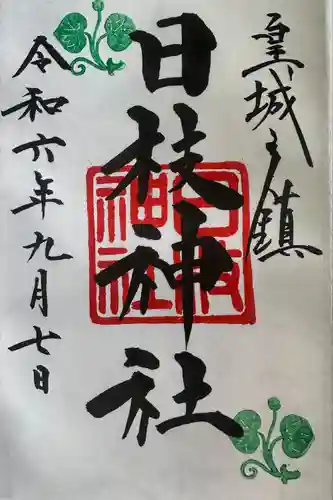 皇城之鎮
日枝神社
日枝神社
令和六年九月七日